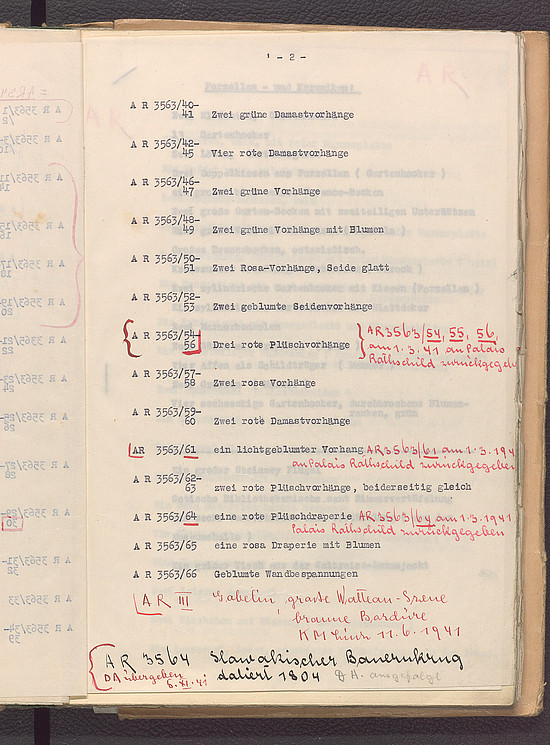 - 2 -
A R 3563/40-
41 Zwei grüne Damastvorhänge
A R 3563/42-
45 Vier rote Damastvorhänge
A R 3563/46-
47 Zwei grüne Vorhänge
A R 3563/48-
49 Zwei grüne Vorhänge mit Blumen
A R 3563/50-
51 Zwei Rosa-Vorhänge, Seide glatt
A R 3563/52-
53 Zwei geblumte Seidenvorhänge
A R 3563/54-
56 Drei rote Plüschvorhänge
AR 3563/54, 55, 56,
am 1.3.41 an Palais
Rothschild zurückgegeb
A R 3563/57-
58 Zwei rosa Vorhänge
A R 3563/59-
60 Zwei rote Damastvorhänge
AR 3563/61 ein lichtgeblumter Vorhang AR 3563/61 am 1.3.194
an Palais Rothschild zurückgegeben
A R 3563/62-
63 zwei rote Plüschvorhänge, beiderseitig gleich
A R 3563/64 eine rote Plüschdraperie AR 3563/64 am 1.3.1941
Palais Rothschild zurückgegeben
A R 3563/65 eine rosa Draperie mit Blumen
A R 3563/66 Geblumte Wandbespannungen
AR III Gobelin, große Watteau-Szene
braune Bordüre
KM Linz 11.6.1941
AR 3564 Slowakischer Bauernkrug
datiert 1804
DA übergeben
6.XI.41
DA. ausgefolgt